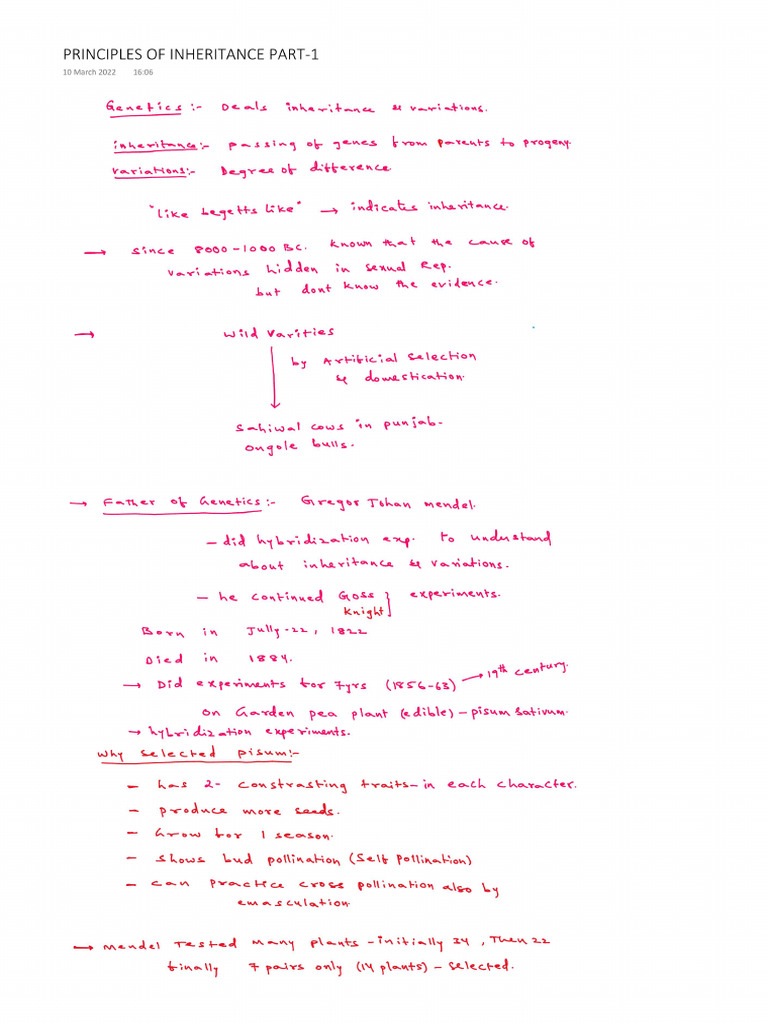 PRINCIPLES OF INHERITANCE PART-1
10 March 2022 16:06
Genetics :- Deals inheritance & variations.
inheritance:- passing of genes from parents to progeny.
variations:- Degree of difference
"like begetts like" → indicates inheritance.
→ since 8000-1000 BC. known that the cause of
variations hidden in sexual Rep.
but dont know the evidence.
→ Wild varities
by Artificial selection
& domestication.
Sahiwal cows in punjab-
ongole bulls.
→ Father of Genetics:- Gregor Johan mendel.
- did hybridization exp. to understand
about inheritance & variations.
- he continued Goss } experiments.
Knight
Born in Jully-22, 1822
Died in 1884.
→ Did experiments for 7yrs (1856-63) → 19th century.
on Garden pea plant (edible) - pisum sativum.
→ hybridization experiments.
Why selected pisum:-
- has 2- constrasting traits-in each character.
- produce more seeds.
- Grow for 1 season.
- shows bud pollination (Self pollination)
- can practice cross pollination also by
emasculation
→ mendel tested many plants - initially 34, Then 22
finally 7 pairs only (14 plants) - selected.